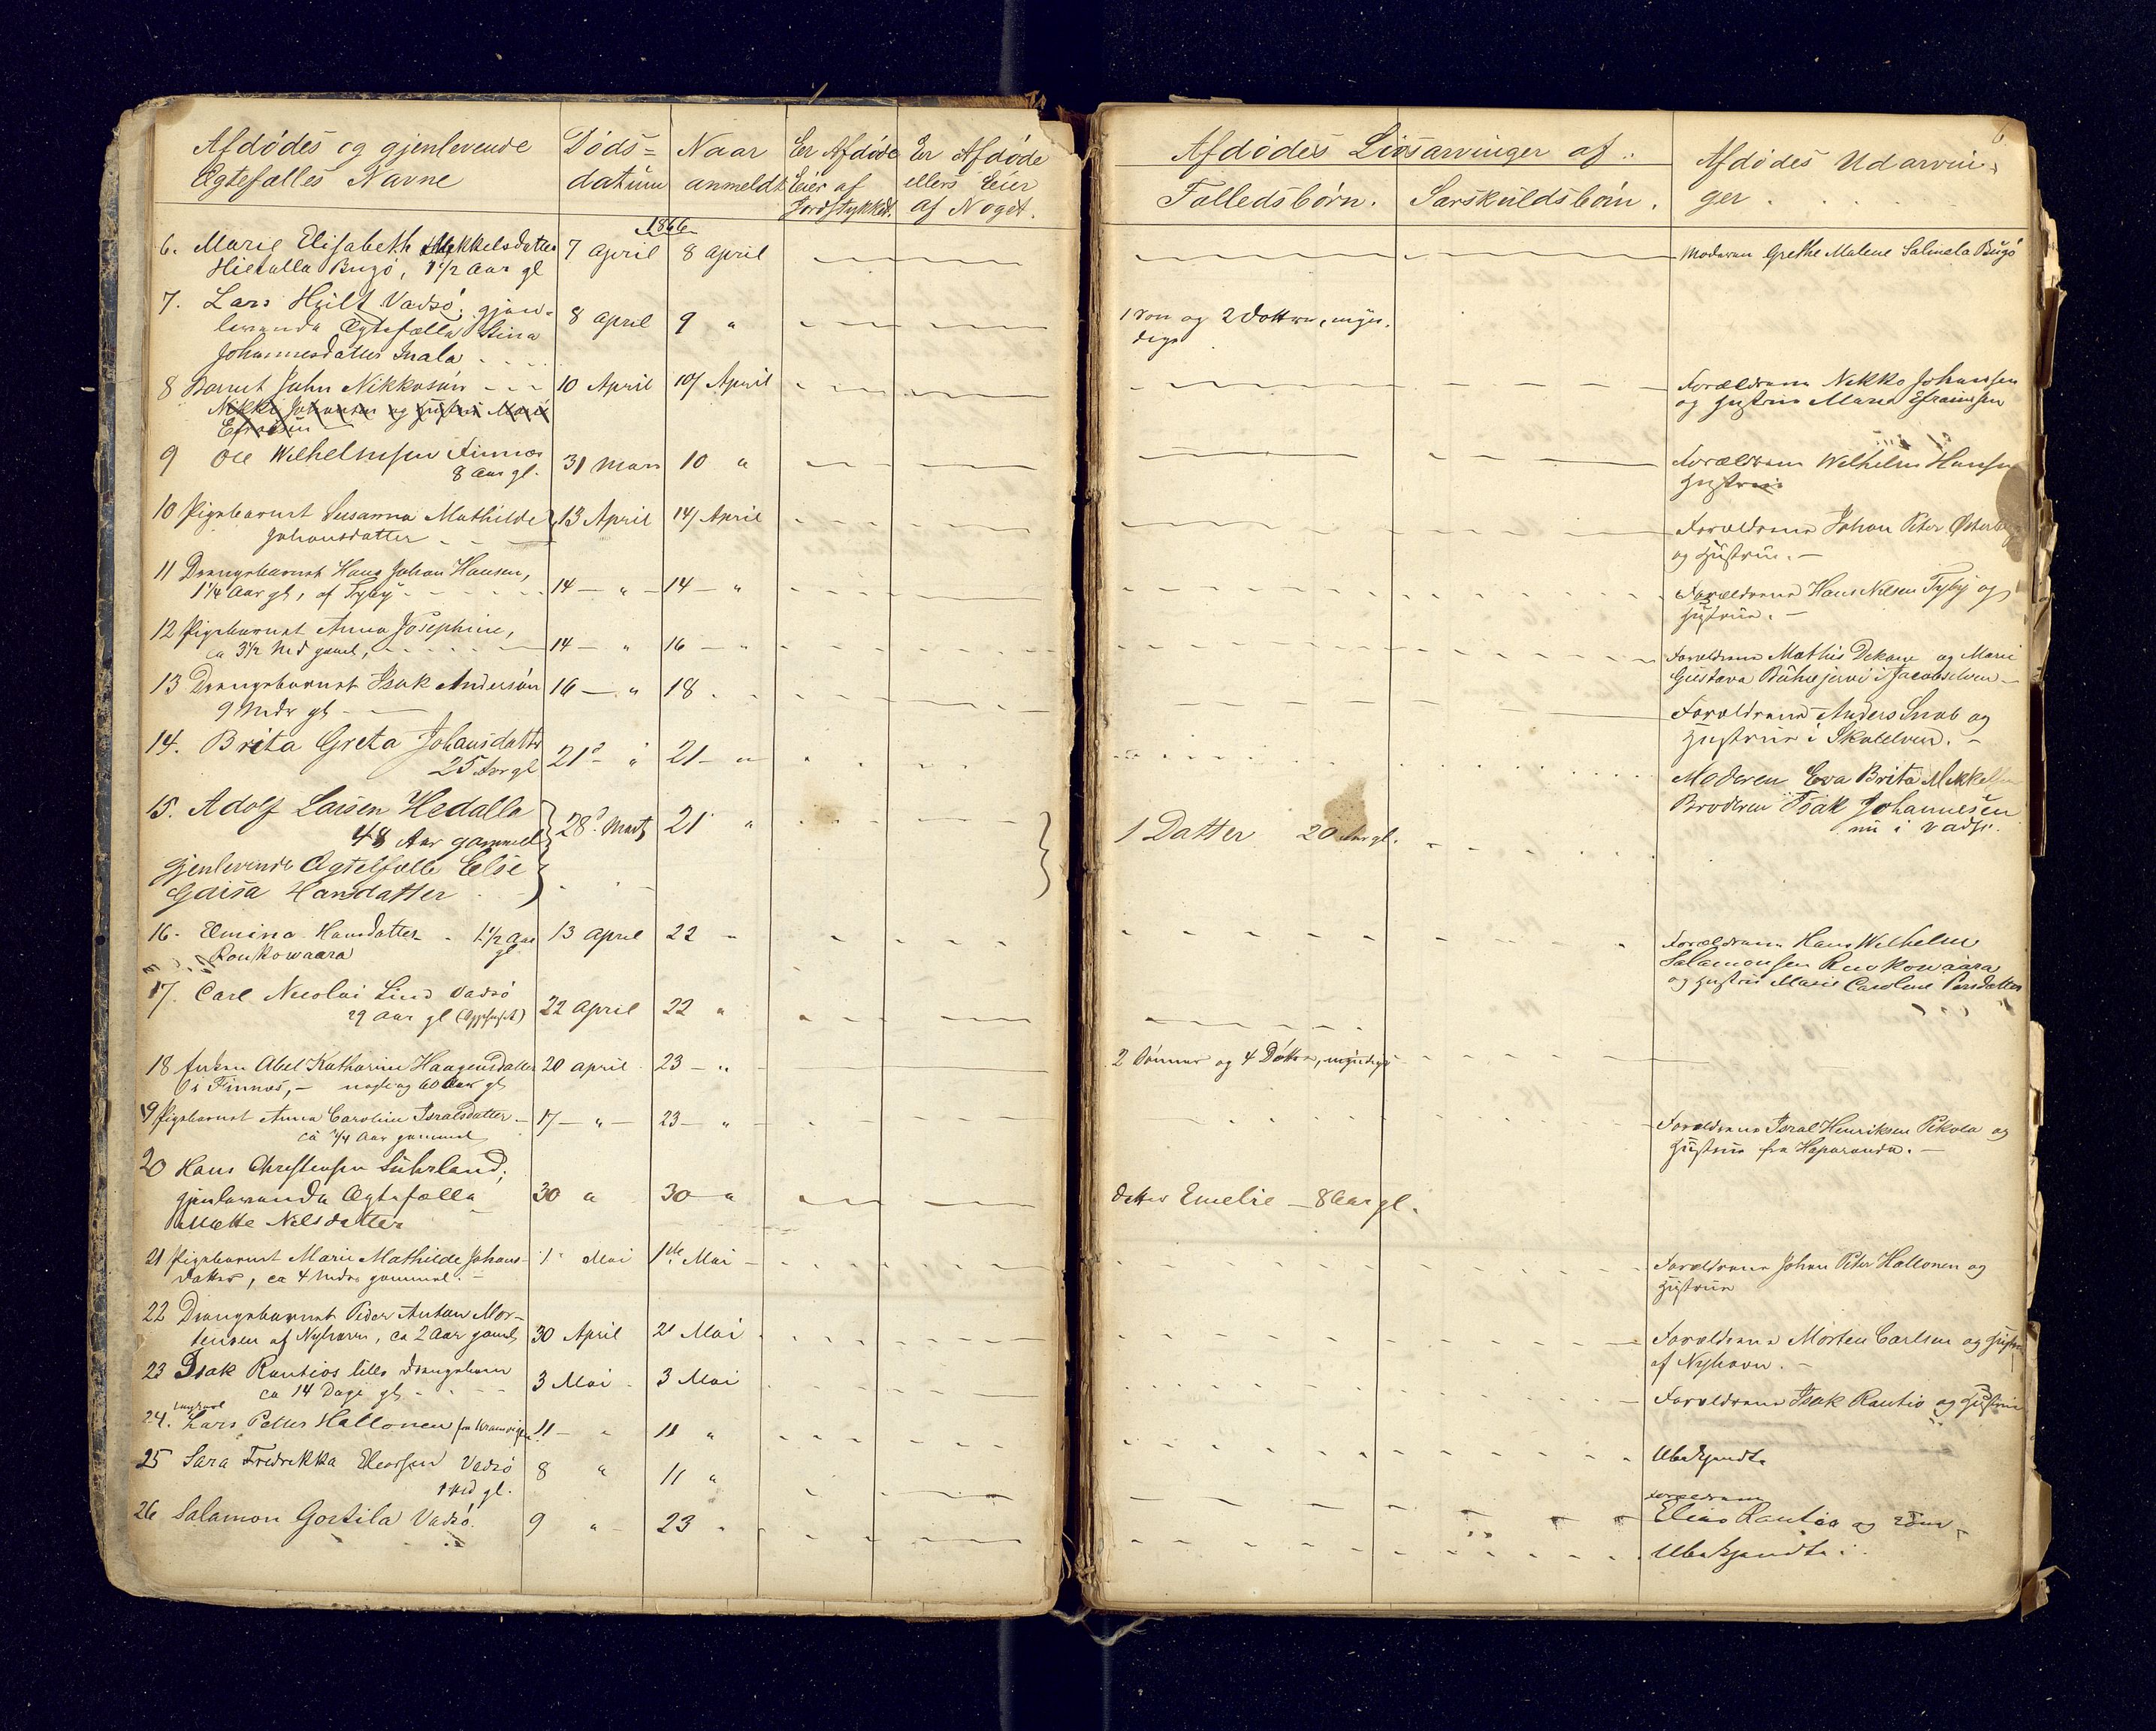 Afdødes og gjenlevende
Ægtefælles Navne
Døds=
datum
Naar
anmeldt
Er Afdøde
Eier af
Jordstykket.
Er Afdøde
ellers Eier
af Noget.
Afdødes Livsarvinger af:
Fælledsbørn.
Særskuldsbørn.
Afdødes Udarvin-
ger
6
1866
6. Marie Elisabeth Mekkelsdatter 7 April 8 April Moderen Grethe Malene Salmela Bugø
Hietalla Bugø, 1 1/2 Aar gl
7. Lars Hvilt Vadsø; gjen- 8 April 9 " 1 Søn og 2 Døttre, myn-
levende Ægtefælle Stina dige
Johannesdatter Mala
8 Barnet John Nikkosøn 10 April 10/ April Forældrene Nikko Johansen
Nikko Johansen og Hustru Marie og Hustru Maria Efraimsen
9 Ole Wilhelmsen Finnæs 31 Mars 10 " Forældrene Wilhelm Hansen
8 Aar gl. Hustrue
10 Pigebarnet Susanna Mathilde 13 April 14/ April Forældrene Johan Peter
Johansdatter og Hustrue.
11 Drengebarnet Hans Johan Hansen, 14 " 14 " Forældrene Hans Nilsen Tyby og
1 1/4 Aar gl, af Tyby Hustrue.
12 Pigebarnet Anna Josephine, 14 " 16 " Forældrene Mathis Dekane og Marie
ca 3 1/2 Md gamel, Gustava i Jacobselven
13 Drengebarnet Isak Andersøn 16 " 18 Forældrene Anders Snab og
9 Mdr gl Hustrue i Skalelven.
14. Brita Greta Johansdatter 21 " 21 " Moderen Eva Brita
25 Aar gl Broderen Isak Johannesen
nu i Vadsø.
15. Adolf Larsen Hedalla 28 Marts 21 " 1 Datter 20 Aar gl.
48 Aar gammel
gjenlevende Ægtefælle Else
Gaisa Hansdatter
16. Elmina Hansdatter 1 1/2 Aar gl 13 April 22 Forældrene Hans Wilhelm
Roukowaara Salamonsen Roukowaara
og Hustru Marie Caroline Persdatter
17. Carl Nicolai Lind Vadsø 22 April 22 "
29 Aar gl
18 Enken Abel Katharine Haagensdatter 20 April 23 " 2 Sønner og 4 Døttre, myndige
i Finnæs, nogle og 60 Aar gl
19 Pigebarnet Anna Caroline Israelsdatter 17 " 23 " Forældrene Israel Henriksen Pekola og
ca 3/4 Aar gammel Hustrue fra Haparanda.
20 Hans Christensen Suhrland; 30 " 30 " datter Emelie 8 Aar gl.
gjenlevende Ægtefælle
Mette Nilsdatter
21 Pigebarnet Marie Mathilde Johans- 1 Mai 1ste Mai Forældrene Johan Peter Hallonen og
datter, ca 4 Mdr gammel. Hustrue
22 Drengebarnet Peder Anton Mor- 30 April 2 Mai Forældrene Morten Carlsen og Hustru
tensen af Nyhavn, ca 2 Aar gamel, af Nyhavn.
23 Isak Rantios lille Drengebarn 3 Mai 3 Mai Forældrene Isak Rantio og Hustrue
ca 14 Dage gl
24. Lars Petter Hallonen fra 11 " 11 " Ubekjendte
25 Sara Fredrikka Eliassen Vadsø 8 " 11 " Forældrene
1 Md gl. Elias Rantio og
26 Salamon Gortila Vadsø. 9 " 23 Ubekjendte